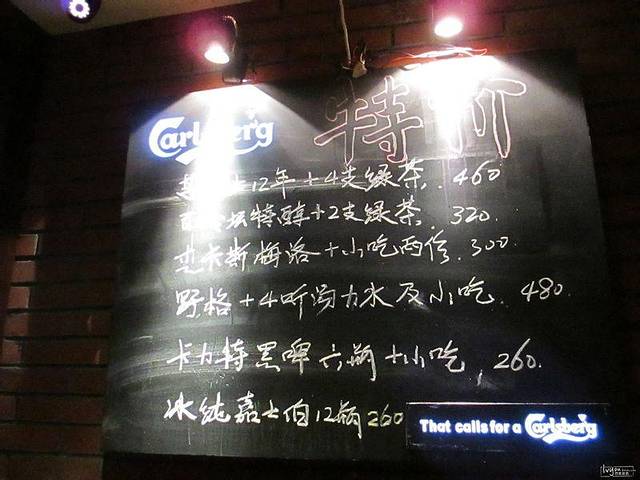 Carlsberg
特价
12年+4支绿茶. 460
坛特醇+2支绿茶. 320.
卡斯梅洛+小吃两份. 300.
野格+4听汤力水及小吃. 480.
卡力特黑啤六瓶+小吃, 260.
冰纯嘉士伯12瓶260
That calls for a Carlsberg